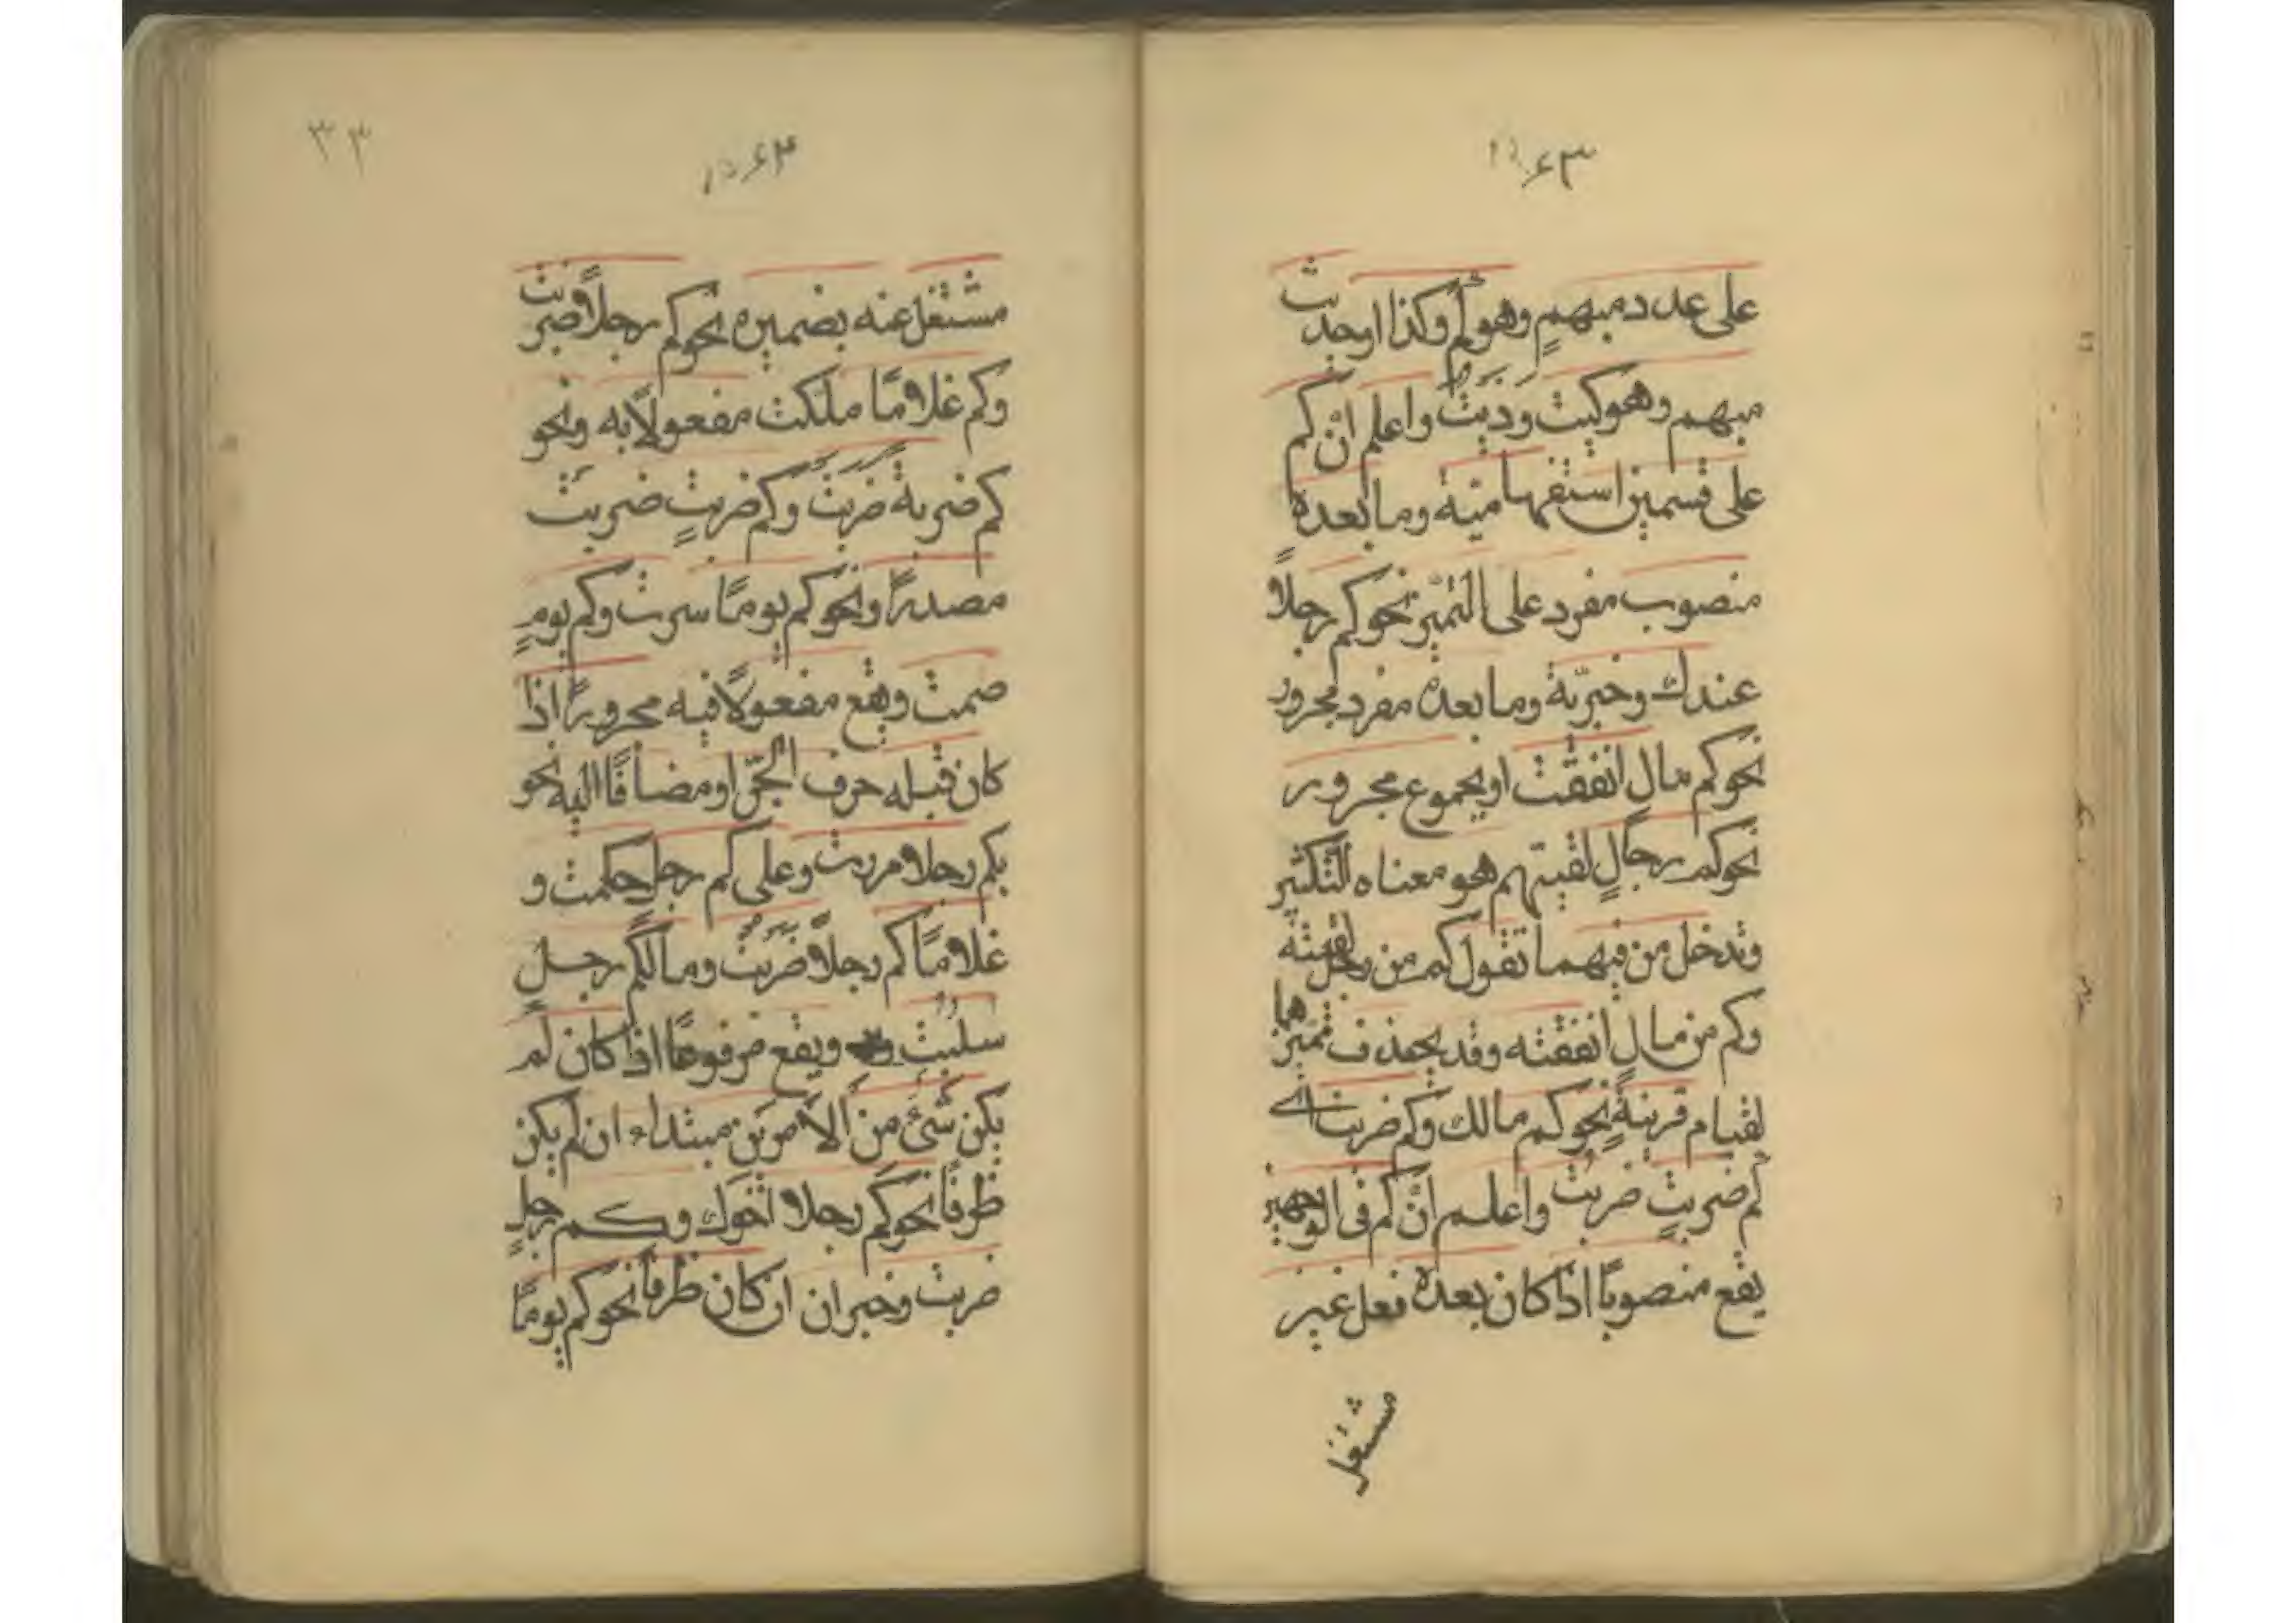 ۶۳
على عدد مبهمٍ وهو كم وكذا او حديث
مبهم وهو كيت وذيت واعلم انّ كم
على قسمين استفهاميّة وما بعده
منصوب مفرد على التّميز نحو كم رجلاً
عندك وخبريّة وما بعده مفرد مجرور
نحو كم مالٍ انفقت او مجموع مجرور
نحو كم رجالٍ لقيتهم هو معناه التّكثير
وتدخل من فيهما تقول كم من رجل لقيته
وكم من مالٍ انفقته وقد يحذف تميزهما
لقيام قرينةٍ نحو كم مالك وكم ضربت اى
كم ضربتٍ ضربت واعلم انّ كم فى الوجهين
يقع منصوبًا اذا كان بعده فعل غير
مشتغل
۳۳
۶۴
مشتغل عنه بضميره نحو كم رجلاً ضربت
وكم غلامًا ملكت مفعولاً به ونحو
كم ضربة ضربت وكم ضربتٍ ضربت
مصدرًا ونحو كم يومًا سرت وكم يومٍ
صمت ويقع مفعولاً فيه مجرورًا اذا
كان قبله حرف الجرّ او مضافًا اليه نحو
بكم رجلا مررت وعلى كم رجل حكمت و
غلامًا كم رجلاً ضربت ومال كم رجل
سلبت ويقع مرفوعًا اذا كان لم
يكن شئ من الأمرين مبتداء ان لم يكن
ظرفًا نحو كم رجلا اخوك وكم رجلٍ
ضربت وخبر ان كان ظرفاً نحو كم يومًا